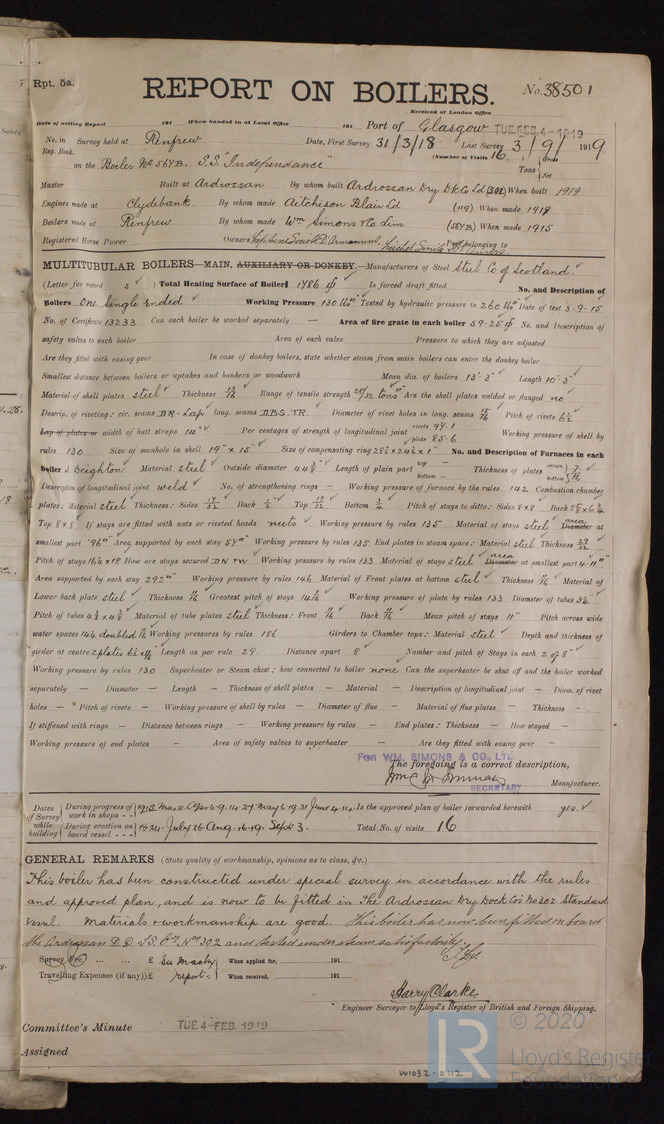 Rpt. 5a.
REPORT ON BOILERS.
No. 38501
Received at London Office
Date of writing Report 191 When handed in at Local Office 191 Port of Glasgow TUE. FEB. 4-1919
No. in Survey held at Renfrew Date, First Survey 31/3/18 Last Survey 3/9/ 1919
Reg. Book. (Number of Visits 16) Gross
on the Boiler No 564B. S.S. "Independance" Tons Net
Master Built at Ardrossan By whom built Ardrossan Dry Dk Co Ld (302) When built 1919
Engines made at Clydebank By whom made Aitcheson Blair Ld (119) When made 1919
Boilers made at Renfrew By whom made Wm Simons & Co. Lim (564B) When made 1915
Registered Horse Power Owners Port belonging to
MULTITUBULAR BOILERS—MAIN, AUXILIARY OR DONKEY.—Manufacturers of Steel Steel Co of Scotland.
(Letter for record S) Total Heating Surface of Boilers 1786 Is forced draft fitted No. and Description of
Boilers One Single Ended Working Pressure 130 lbs Tested by hydraulic pressure to 260 lbs Date of test 3-9-15
No. of Certificate 13233 Can each boiler be worked separately — Area of fire grate in each boiler 59.25 No. and Description of
safety valves to each boiler Area of each valve Pressure to which they are adjusted
Are they fitted with easing gear In case of donkey boilers, state whether steam from main boilers can enter the donkey boiler
Smallest distance between boilers or uptakes and bunkers or woodwork Mean dia. of boilers 13'-3" Length 10'-3"
Material of shell plates steel Thickness 13/16 Range of tensile strength 28/32 tons Are the shell plates welded or flanged no
Descrip. of riveting: cir. seams DR-Lap long. seams D.B.S. TR. Diameter of rivet holes in long. seams 15/16 Pitch of rivets 6½
Lap of plates or width of butt straps 14" Per centages of strength of longitudinal joint rivets 94.1 plate 85.6 Working pressure of shell by
rules 130 Size of manhole in shell 19" x 15" Size of compensating ring 28½ x 24½ x 1" No. and Description of Furnaces in each
boiler 3 Deighton Material steel Outside diameter Length of plain part top bottom Thickness of plates crown bottom 7/16
Description of longitudinal joint weld No. of strengthening rings — Working pressure of furnace by the rules 142 Combustion chamber
plates: Material steel Thickness: Sides Back Top Bottom ¾ Pitch of stays to ditto: Sides 8 x 8 Back
Top 8 x 8 If stays are fitted with nuts or riveted heads nuts Working pressure by rules 135 Material of stays steel area Diameter at
smallest part Area supported by each stay Working pressure by rules 135 End plates in steam space: Material steel Thickness 29/32
Pitch of stays 16¼ x 18 How are stays secured DN+W Working pressure by rules 133 Material of stays steel area Diameter at smallest part 4.11
Area supported by each stay 292 Working pressure by rules 146 Material of Front plates at bottom steel Thickness 11/16 Material of
Lower back plate steel Thickness 11/16 Greatest pitch of stays Working pressure of plate by rules 133 Diameter of tubes 3¼"
Pitch of tubes Material of tube plates steel Thickness: Front 11/16 Back 11/16 Mean pitch of stays 11" Pitch across wide
water spaces 14¼ doubled Working pressures by rules 186 Girders to Chamber tops: Material steel Depth and thickness of
girder at centre 2 plates Length as per rule 29. Distance apart 8" Number and pitch of Stays in each 2 of 8"
Working pressure by rules 130 Superheater or Steam chest; how connected to boiler none Can the superheater be shut off and the boiler worked
separately — Diameter — Length — Thickness of shell plates — Material — Description of longitudinal joint — Diam. of rivet
holes — Pitch of rivets — Working pressure of shell by rules — Diameter of flue — Material of flue plates — Thickness —
If stiffened with rings — Distance between rings — Working pressure by rules — End plates: Thickness — How stayed —
Working pressure of end plates — Area of safety valves to superheater — Are they fitted with easing gear —
FOR WM. SIMONS & CO., LTD.
The foregoing is a correct description,
SECRETARY
Manufacturer.
Dates of Survey while building
During progress of work in shops - - 1915 Mar 31. Apr 6. 9. 14. 27. May 6. 19. 31 June 4. 14. Is the approved plan of boiler forwarded herewith yes.
During erection on board vessel - - - 18 24. July 26. Aug. 16. 19. Sept 3. Total No. of visits 16
GENERAL REMARKS (State quality of workmanship, opinions as to class, &c.)
This boiler has been constructed under special survey in accordance with the rules
and approved plan, and is now to be fitted in the Ardrossan Dry Dock Cos No 302 Standard
Vessel. Materials & workmanship are good. This boiler has now been fitted on board
the Ardrossan D.D. No 302 and tested under steam satisfactorily.
Survey Fee ... ... £ See Machy When applied for, 191
Travelling Expenses (if any) £ report. When received, 191
Harry Clarke
Engineer Surveyor to Lloyd's Register of British and Foreign Shipping.
Committee's Minute TUE. 4-FEB. 1919
Assigned
W1032-0112
LR
© 2020
Lloyd's Register
Foundation